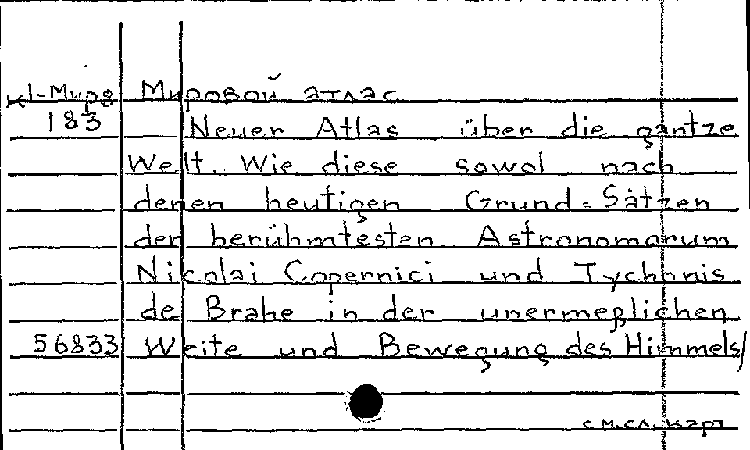 К1-Миро Мировой атлас
183 Neuer Atlas über die gäntze
Welt. Wie diese sowol nach
denen heutigen Grund=Sätzen
der berühmtesten Astronomorum
Nicolai Copernici und Tychonis
de Brahe in der unermeßlichen
56833 Weite und Bewegung des Himmels/
см.сл. карт